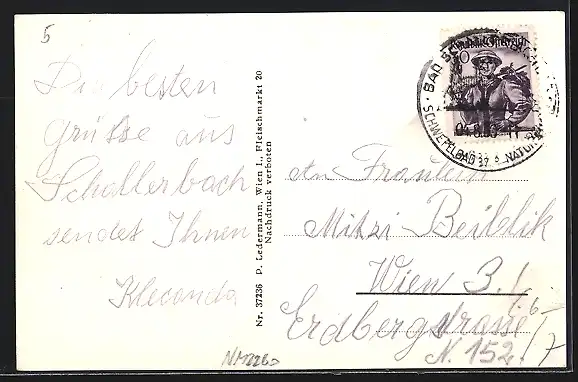 5
Die besten
Grüsse aus
Schallerbach
sendet Ihnen
Nr. 37236 P. Ledermann, Wien I., Fleischmarkt 20
Nachdruck verboten
BAD SCHALLERBACH
SCHWEFELBAD 37°
An Fräulein
Mitzi Beiblik
Wien 3.
Erdbergstrasse
N. 152